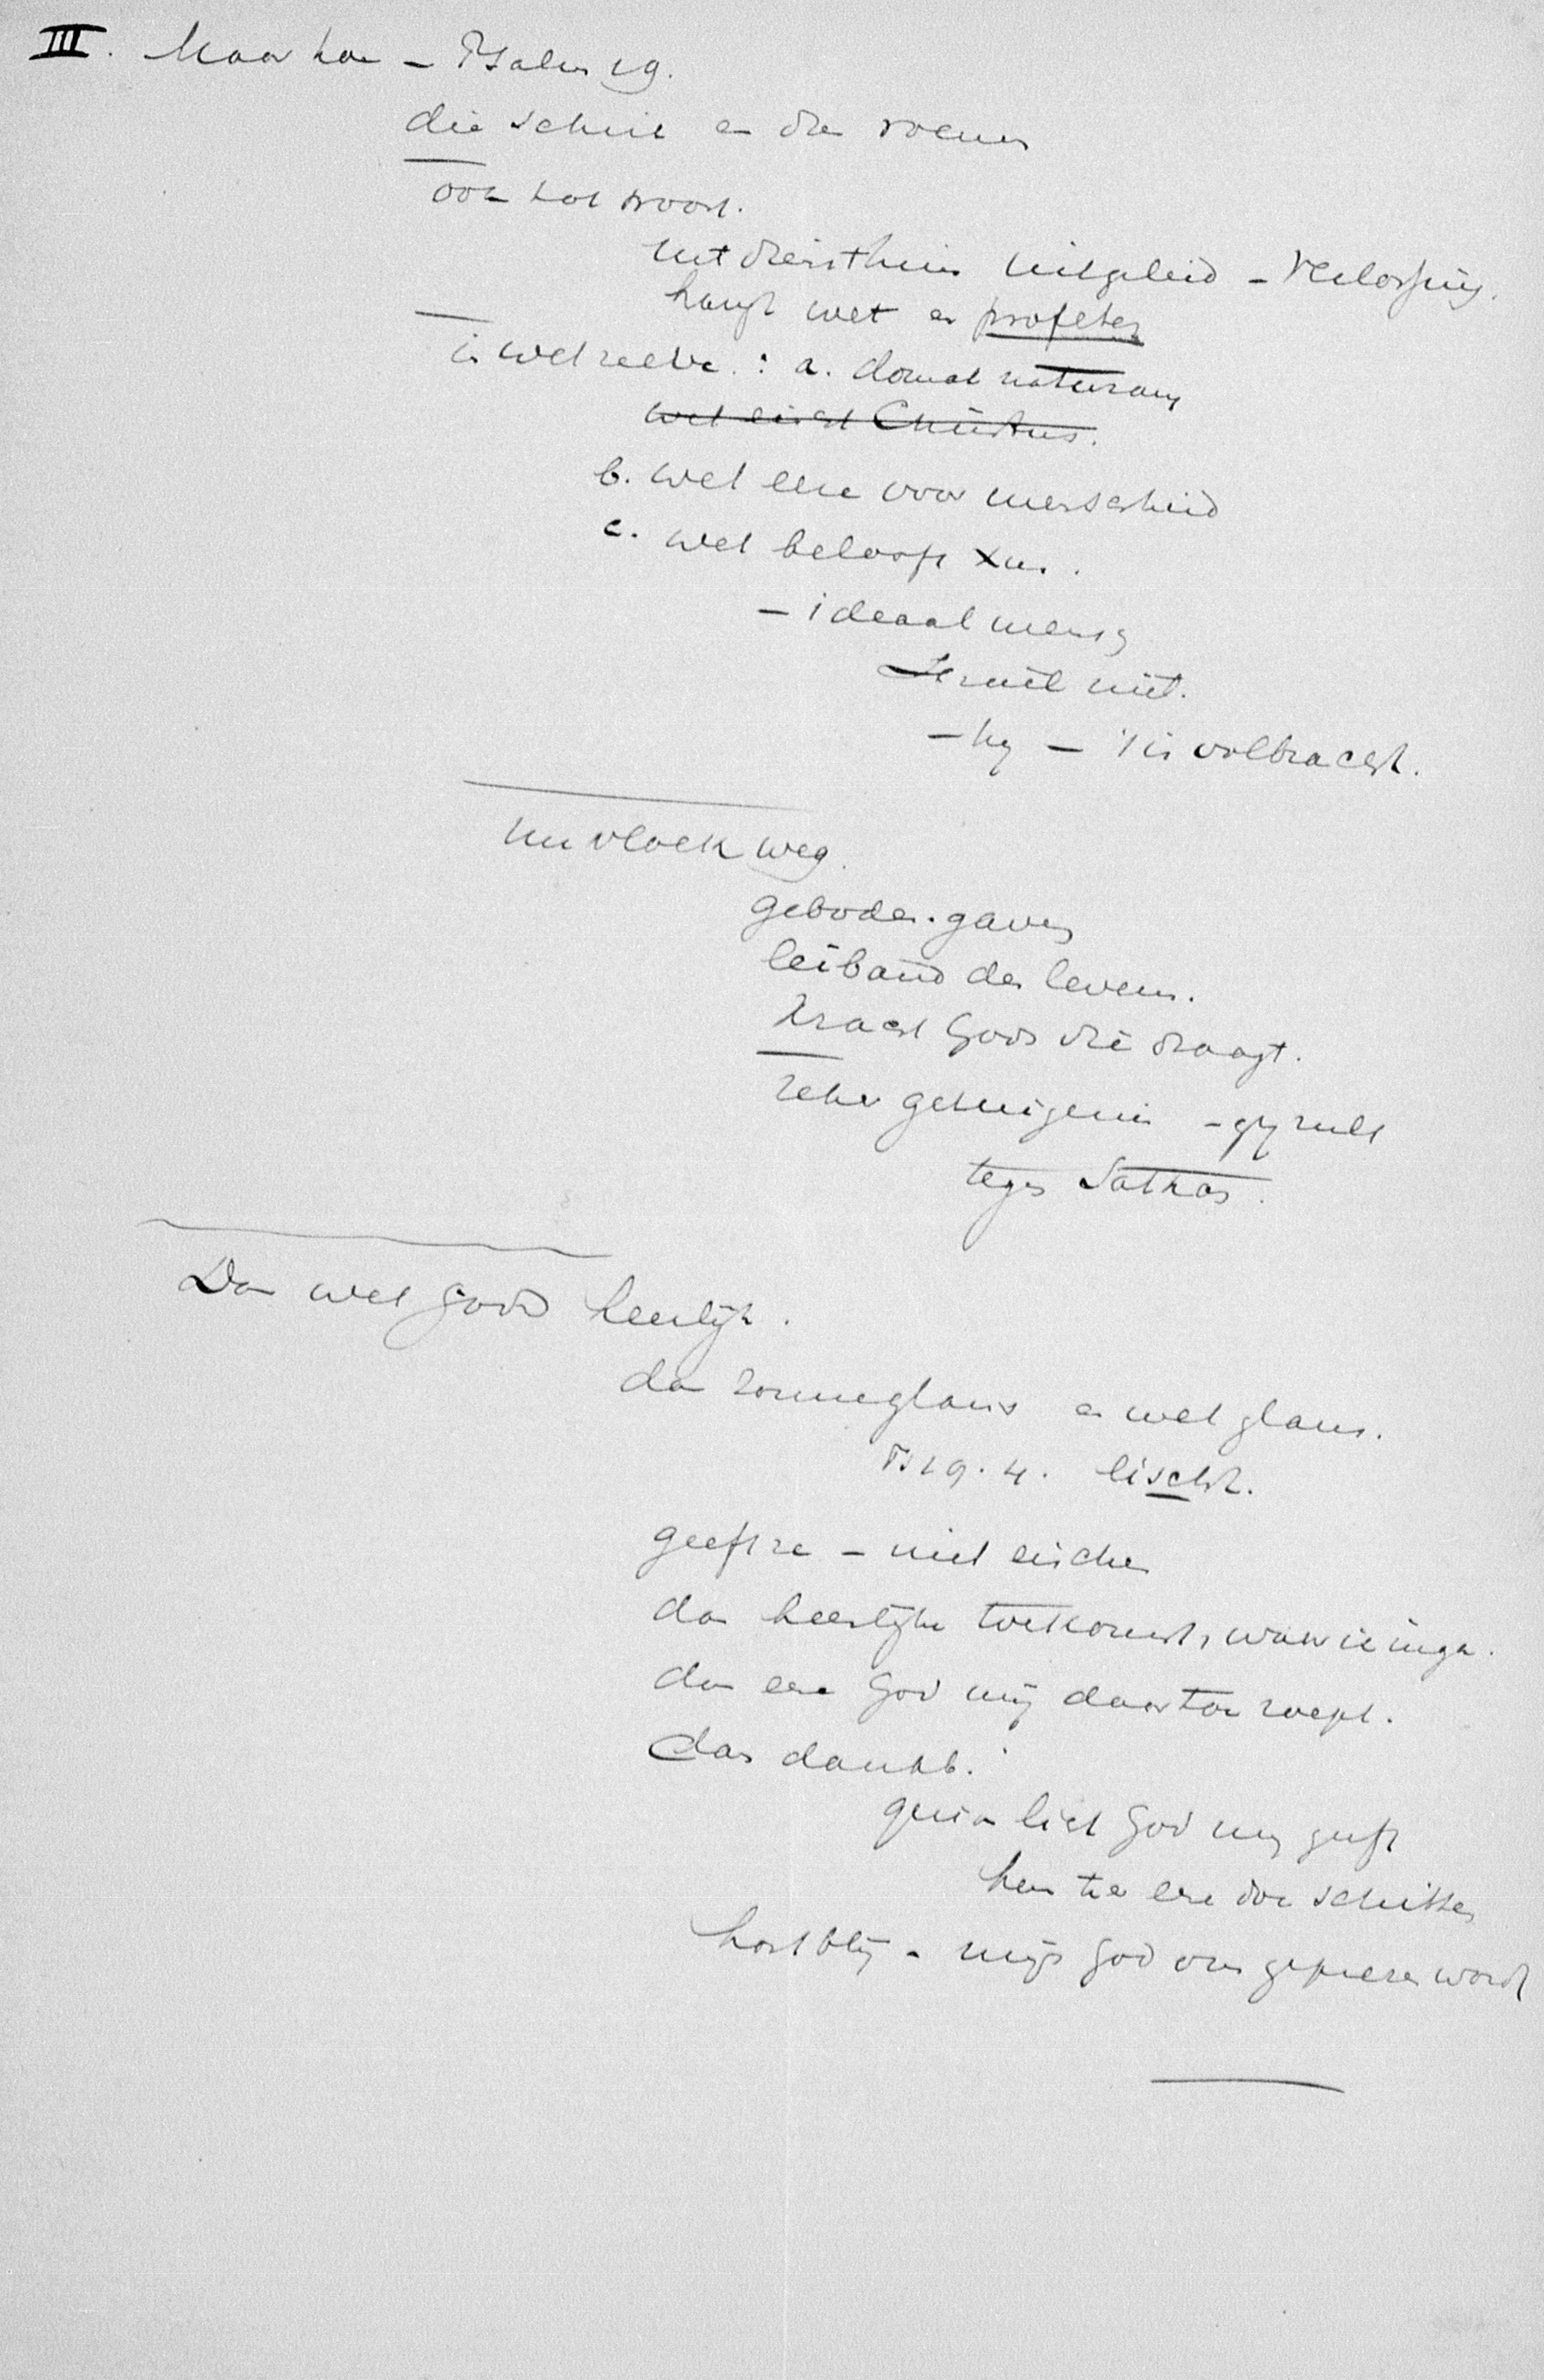 III. Maar hoe – Psalm 19.
die schuit en die roemen
ook het woord.
uit diensthuis uitgeleid – Verlossing.
hangt wet en profeten
is wet reeds : a. domat naturam
wet eischt Christus.
b. wet eere voor menschheid
c. wet belooft Xus.
– ideaal mensch
Israël niet.
– hij – 't is volbracht.
nu vloek weg.
geboden. gaven
leiband des levens.
kracht Gods die draagt.
zeker getuigenis – gij zult
tegen Sathan.
Dan wet Gods heerlijk.
dan zonneglans en wet glans.
Ps 19. 4. lischt.
geeft ze – niet eischen
dan heerlijke toekomst, waar ik inga.
dan eere God mij daartoe roept.
dan dankb.
quia licht God mij geeft
hem ter eere doe schitteren
hart blij – mijn God om geprezen wordt